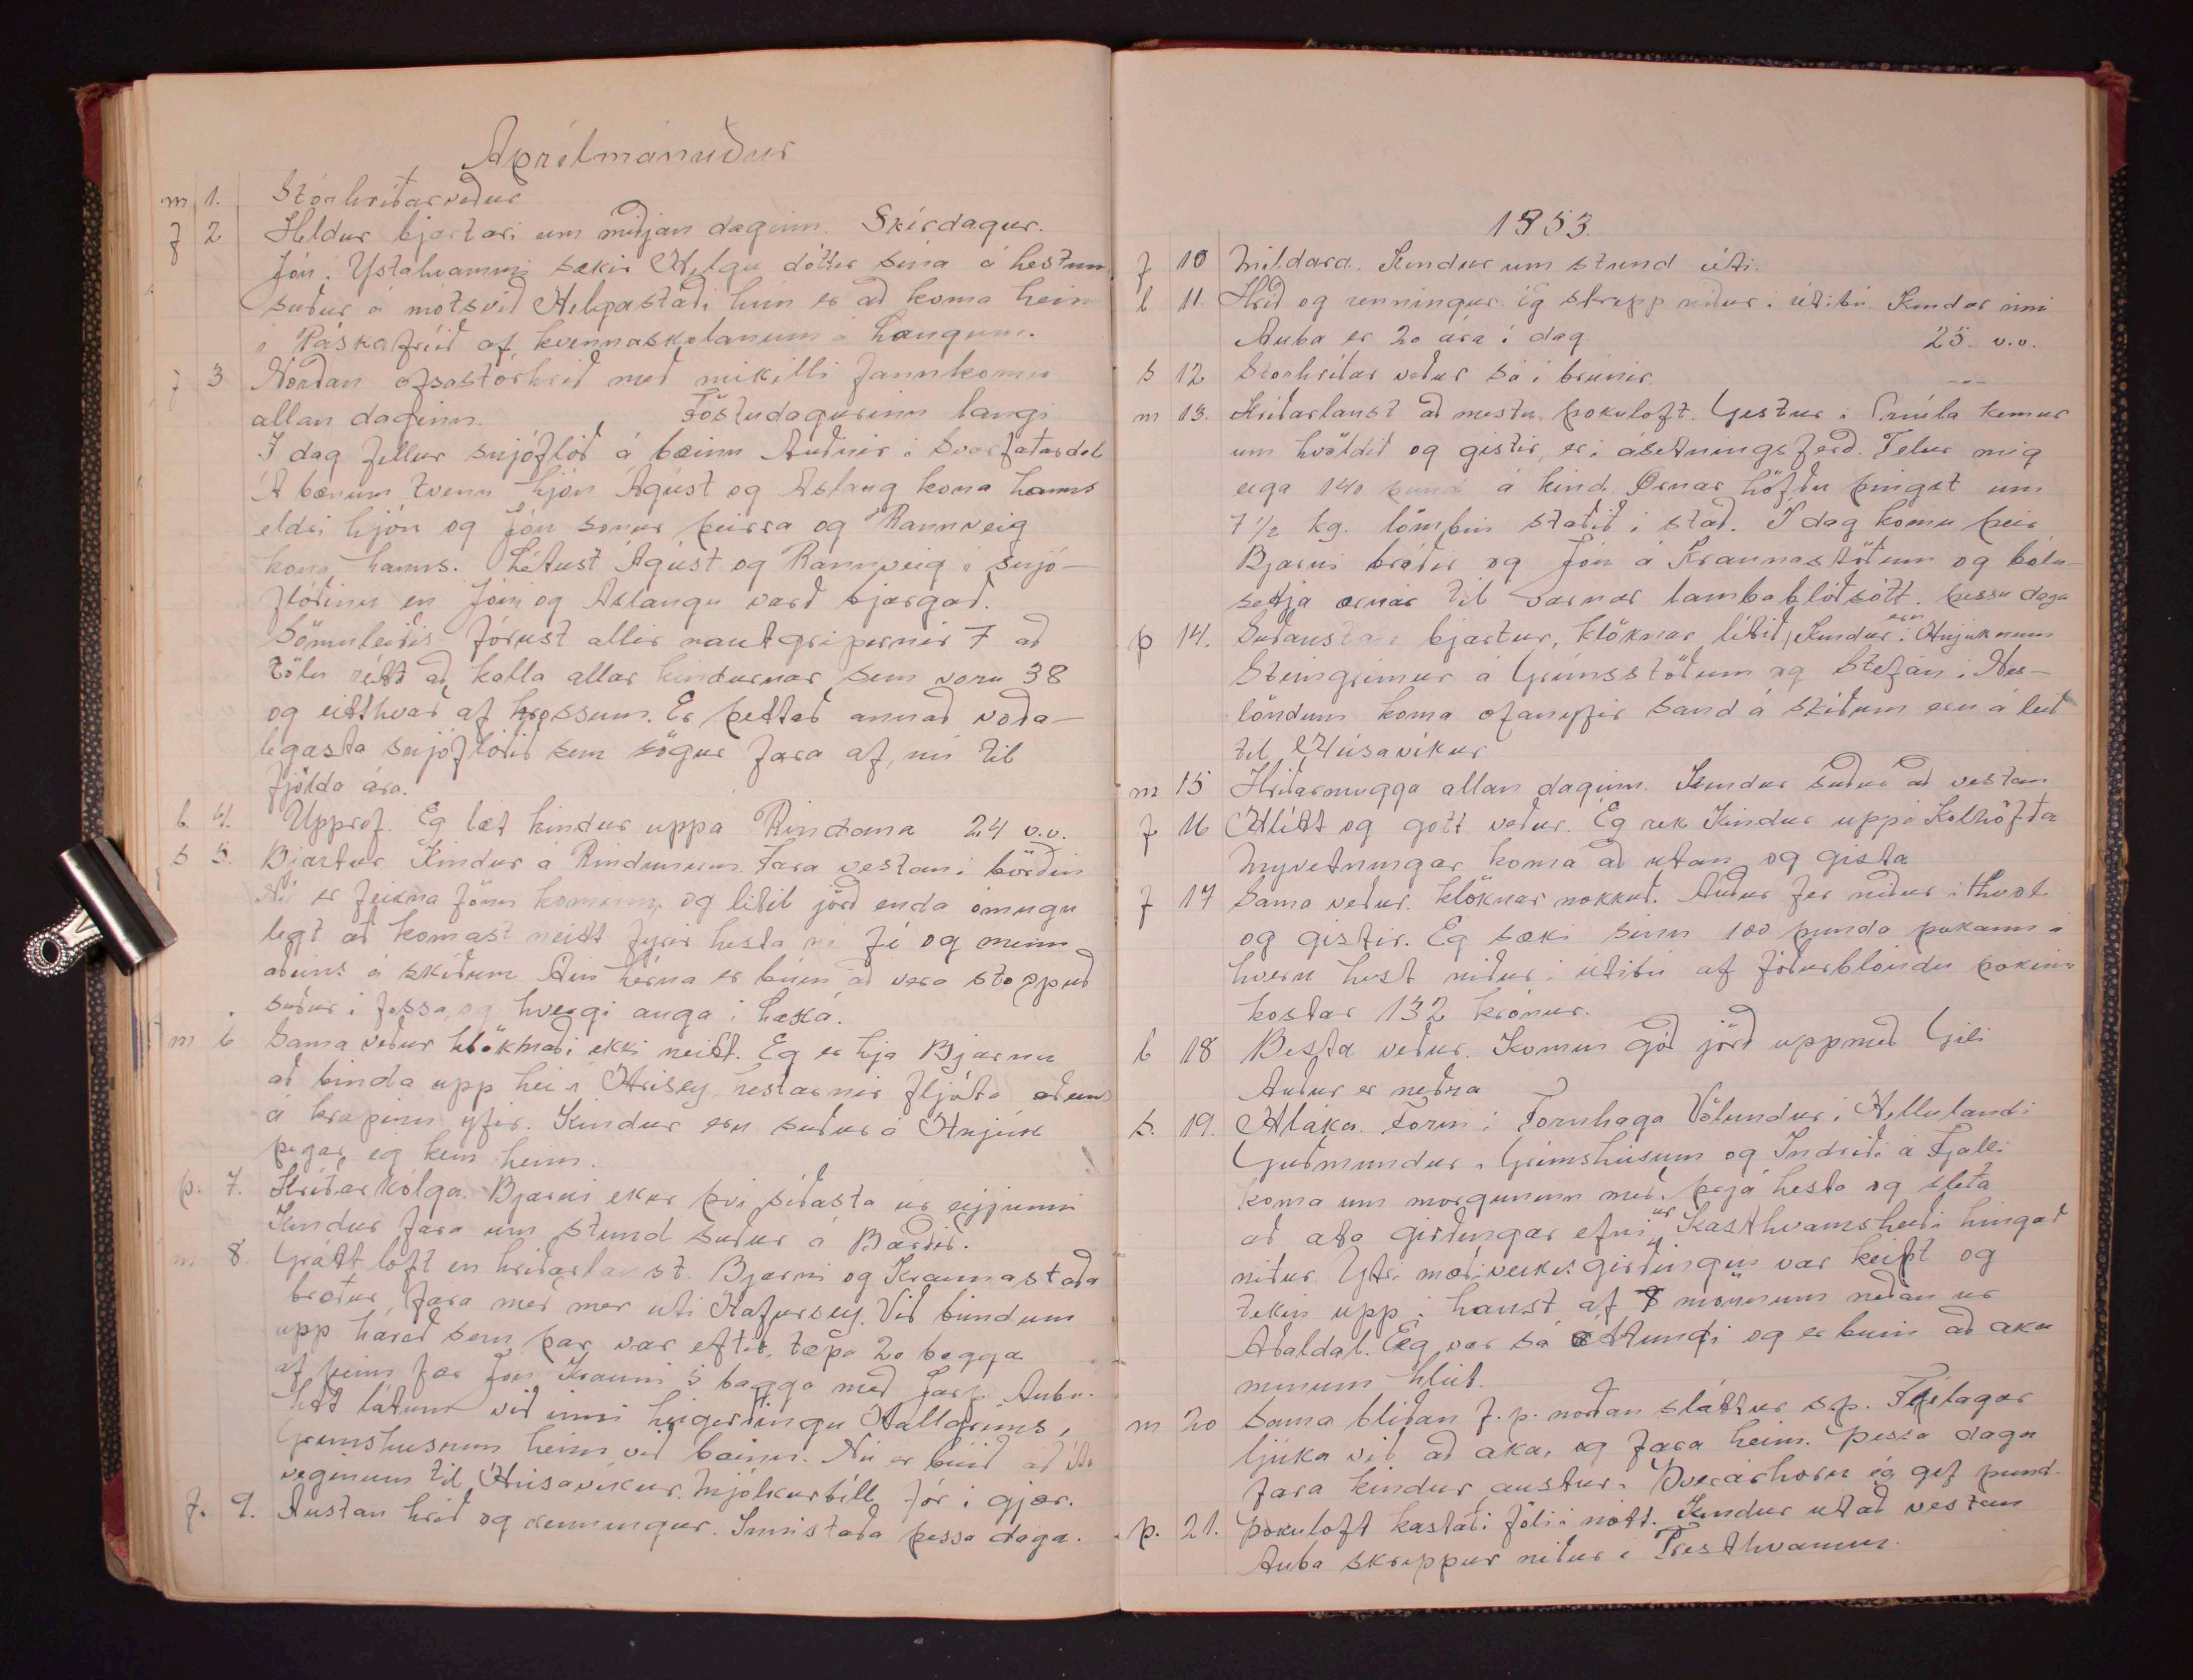 Aprílmánuður
m 1. Stórhríðarveður
f 2 Heldur bjartari um miðjan daginn. Skírdagur.
Jón í Ystahvammi sækir Helgu dóttir sína á hestum
suður á móts við Helgastaði hún er að koma heim
í Páskafríið af kvennaskólanum á Laugum.
f 3 Norðan ofsastórhríð með mikilli fannkomu
allan daginn. Föstudagurinn langi
Í dag fellur snjóflóð á bæinn Auðnir í Svarfaðardal
Á bænum tvenn hjón Ágúst og Aslaug kona hanns
eldri hjón og Jón sonur þeirra og Rannveig
kona hanns. Létust Ágúst og Rannveig í snjó-
flóðinu en Jóni og Aslaugu varð bjargað.
Sömuleiðis fórust allir nautgripirnir 7 að
tölu rétt að kalla allar kindurnar sem voru 38
og eitthvað af hrossum. Er þettað annað voða-
legasta snjóflóðið sem sögur fara af, nú til
fjölda ára.
l. 4. Upprof. Eg læt kindur uppá Rindana 24 v.v.
s 5. Bjartur Kindur á Rindunum. Fara vestan í börðin
Nú er feikna fönn kominn, og litil jörð enda ómugu
legt að komast neitt fyrir hesta né fé og menn
aðeins á skíðum. Áin hérna er búin að vera stoppuð
suður í fossa, og hvergi auga í Laxá.
m 6 Sama veður klökknaði ekki neitt. Eg er hja Bjarna
að binda upp hei í Hrisey hestarnir fljóta aðeins
á krapinu yfir. Kindur eru suður á Hnjúk
þegar eg kem heim.
þ. 7. Hríðarkólga. Bjarni ekur því síðasta úr eyjunni
Kindur fara um stund suður á Barðið.
m 8. Grátt loft en hríðarlaust. Bjarni og Kraunastaða
bræður fara með mer uti Hafursey. Við bundum
upp háið sem þar var eftir, tæpa 20 bagga
af þeim fær Jón Krauni 5 bagga með Jarp Aubu.
látum við inni heigerðingu Hallgrims,
Grimshusum heim við bæinn. Nú er búið að
veginum til Húsavíkur. Mjólkurbíll fór í gjær.
f. 9. Austan hríð og renningur. Innistaða þessa daga.
1953.
f 10 Mildara. Kindur um stund úti.
l 11. Hríð og renningur. Eg skrepp niður í útibú Kindur inni
Auba er 20 ára í dag. 25. v.v.
s 12 Stórhríðar veður sá í brúnir. ---
m 13. Hríðarlaust að mestu, þokuloft. Gestur í Múla kemur
um kvöldið og gistir, er í ásetningsferð. Telur mig
eiga 140 pund á kind. Ærnar höfðu þingst um
7 1/2 kg. lömbin staðið i stað. Í dag komu þeir
Bjarni bróðir og Jón á Kraunastöðum og bólu-
setja ærnar til varnar lambablóðsótt. þessa daga
þ 14. Suðaustan bjartur, klöknar lítið, Kindur eru í Hnjuknum
Steingrimur á Grímsstöðum og Stefán í Nes-
löndum koma ofanyfir Sand á skíðum eru á leið
til Húsavíkur
m 15 Hríðarmugga allan daginn. Kindur suður að vestan
f 16 Hlítt og gott veður. Eg rek Kindur uppá Kolhöfða
Mývetningar koma að utan og gista
f 17 Sama veður. klöknar nokkuð. Auður fer niður í Hvol
og gistir. Eg sæki sinn 100 punda pokann á
hvern hest niður í útibú af fóðurblöndu pokinn
kostar 132 krónur.
l 18 Besta veður. Komin góð jörð uppmeð Gili
Auður er neðra
s. 19. Hláka. Forni í Fornhaga Völundur í Hellulandi
Guðmundur í Grímshúsum og Indriði á Fjalli
koma um morguninn með þrjá hesta og sleða
að aka girðingar efni úr Kasthvamsheiði hingað
niður. Ytri mæðiveikis girðingin var keift og
tekin upp í haust af 8 mönnum neðan ur
Aðaldal. Eg var sá áttundi og er buin að aka
minum hlut.
m 20 Sama bliðan f.p. norðan sláttur s.p. Felagar
ljúka við að aka, og fara heim. þessa daga
fara kindur austur í Þverárhorn ég gef pund.
þ. 21. þokuloft kastaði föli í nótt. Kindur utað vestan
Auba skreppur niður í Presthvamm.